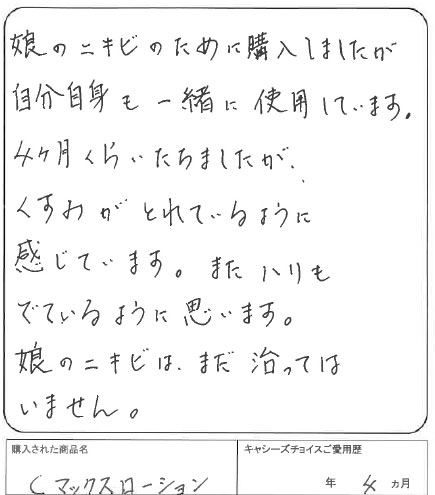 娘のニキビのために購入しましたが
自分自身も一緒に使用しています。
4ヶ月くらいたちましたが、
くすみがとれているように
感じています。またハリも
でているように思います。
娘のニキビは、まだ治っては
いません。
購入された商品名
キャシーズチョイスご愛用歴
Cマックスローション
年 4 ヵ月